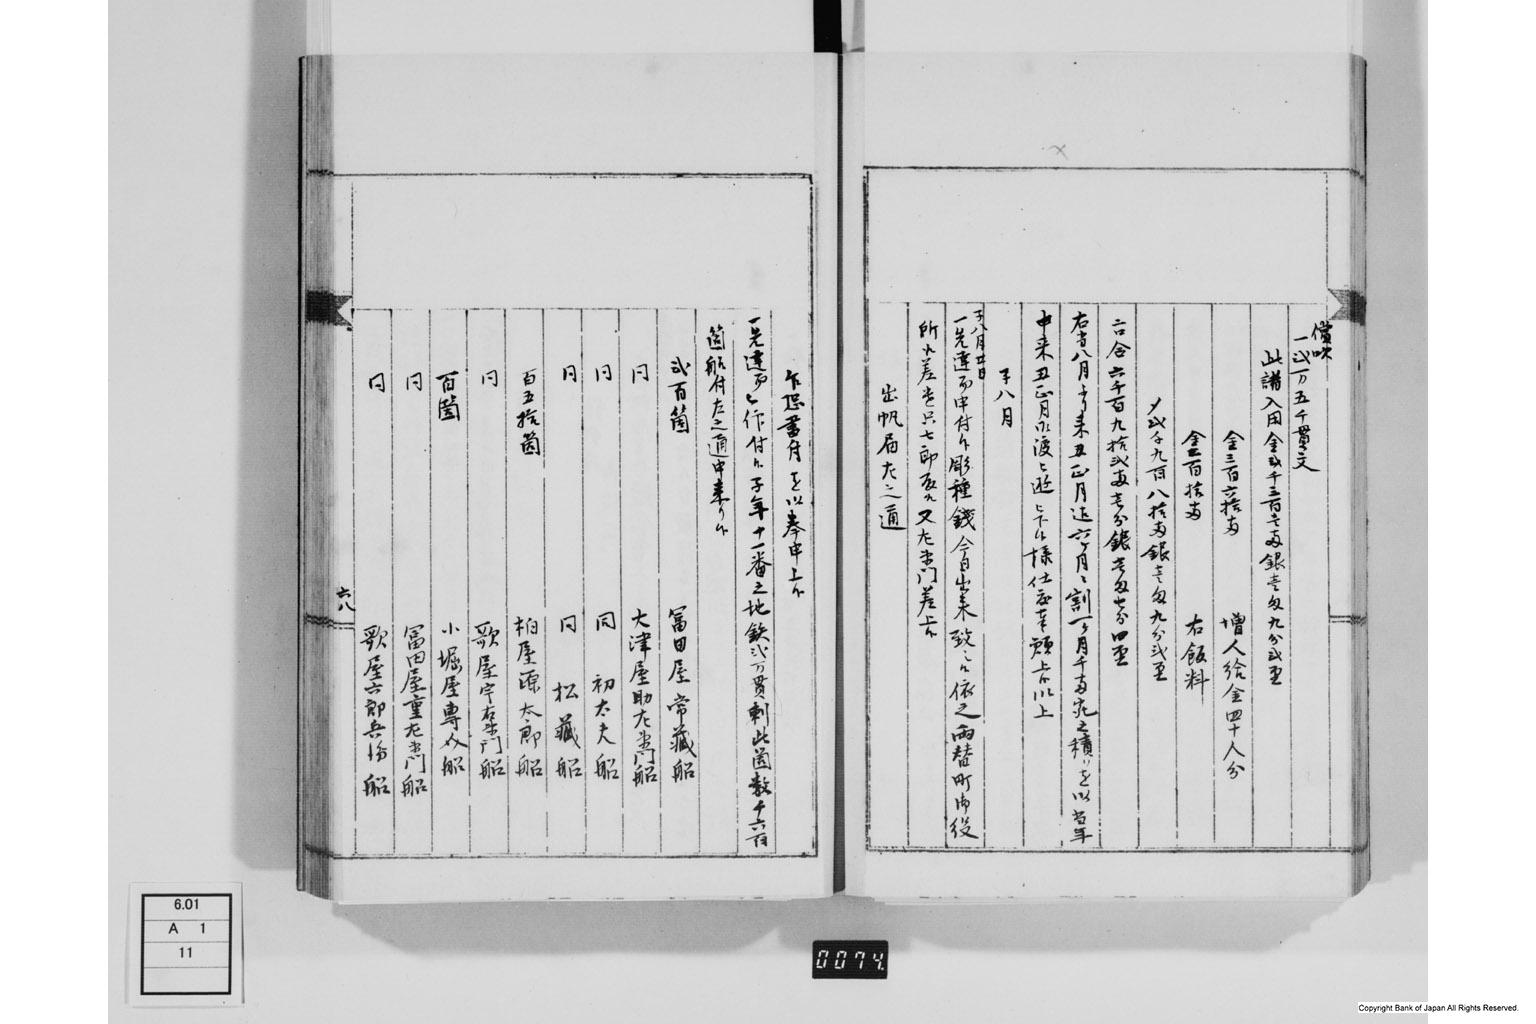 償吹
一弐万五千貫文
此諸入用金弐千三百壱両銀壱匁九分弐厘
金三百六拾両 増人給金四十人分
金三百拾両 右飯料
〆弐千九百八拾両銀壱匁九分弐厘
二口合六千百九拾弐両壱分銀壱匁七分四厘
右当八月より来丑正月迄六ヶ月ニ割一ヶ月千両宛之積りを以当年
申来丑正月
子八月
子八月廿日
一先達而申付候彫種銭今日出来致候ニ依之両替町御役
所江差出
又左衛門差上候
出帆届左之通
乍恐書付を以奉申上候
一先達而被仰付候子年十一番之地鉄弐万貫刺此箇数千六百
箇船付左之通申来り候
弐百箇 冨田屋常蔵船
同 大津屋助左衛門船
同 同 初太夫船
同 同 松蔵船
百五拾箇 柏屋源太郎船
同 歌屋宇右衛門船
百箇 小堀屋専
船
同 冨田屋重左衛門船
同 歌屋六郎兵衛船
六八
6.01
A 1
11
0074
Copyright Bank of Japan All Rights Reserved.